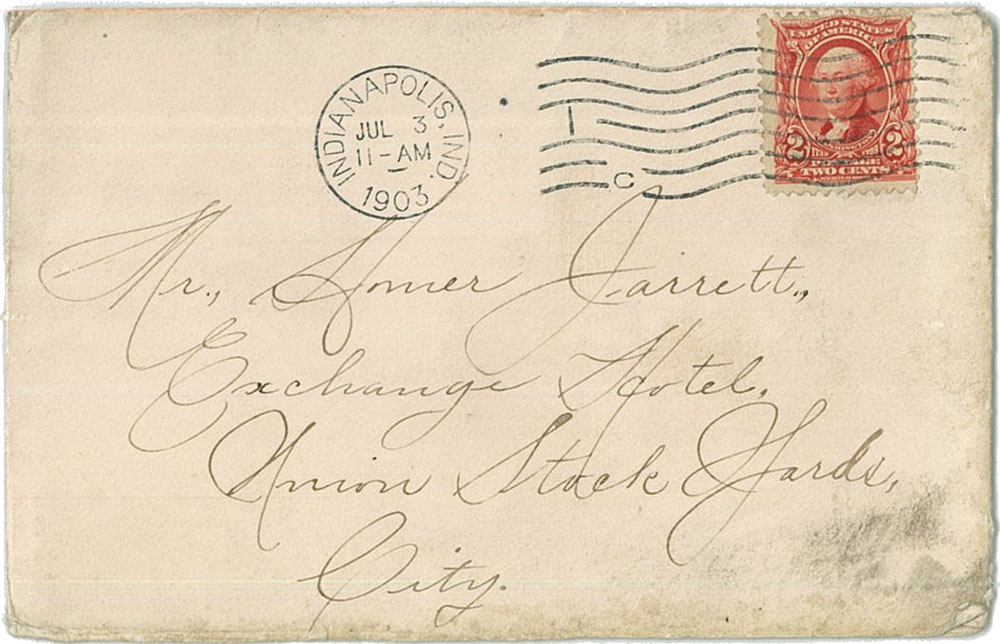 INDIANAPOLIS, IND.
JUL 3
11-AM
1903
C
UNITED STATES
OF AMERICA
2 2
POSTAGE
TWO CENTS
Mr., Homer Jarrett.,
Exchange Hotel,
Union Stock Yards,
City.